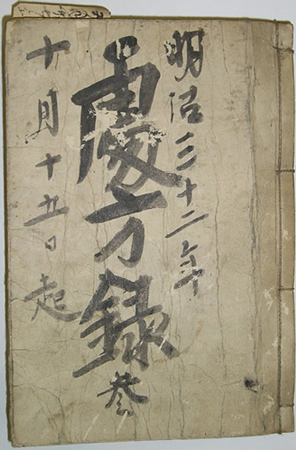 明治三十二年
處方録 参
十月十五日起